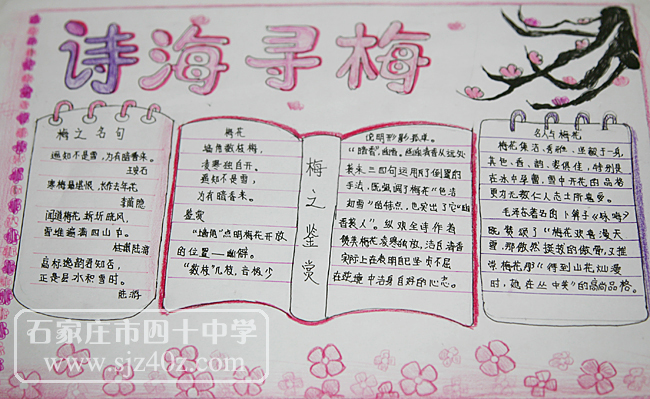 诗海寻梅
梅之名句
遥知不是雪,为有暗香来。
王安石
寒梅最堪恨,长作去年花
李商隐
闻道梅花坼晓风,
雪堆遍满四山中。
陆游
高标逸韵君知否,
正是层冰积雪时。
陆游
梅花
墙角数枝梅,
凌寒独自开。
遥知不是雪,
为有暗香来。
鉴赏
“墙角”点明梅花开放
的位置——幽僻。
“数枝”几枝,言极少
梅之鉴赏
说明形影孤单。
“暗香”,幽香。
手法,既强调了梅花“色洁
如雪”的特点,也突出了它“幽
香袭人”。纵观全诗作者
赞美梅花凌寒独放,洁白清香
实际上在表明自己坚贞不屈
在逆境中洁身自好的心态。
名人与梅花
梅花集洁、
其色、香、韵、
在冰中孕蕾,雪中开花的品格
更为无数仁人志士所喜爱。
毛泽东著名的卜算子《咏梅》
既赞颂了“梅花欢喜漫天
雪,那傲然挺拔的傲骨,又推
崇梅花那“得到山花烂漫
时,她在丛中笑”的高尚品格。
石家庄市四十中学
www.sjz40z.com